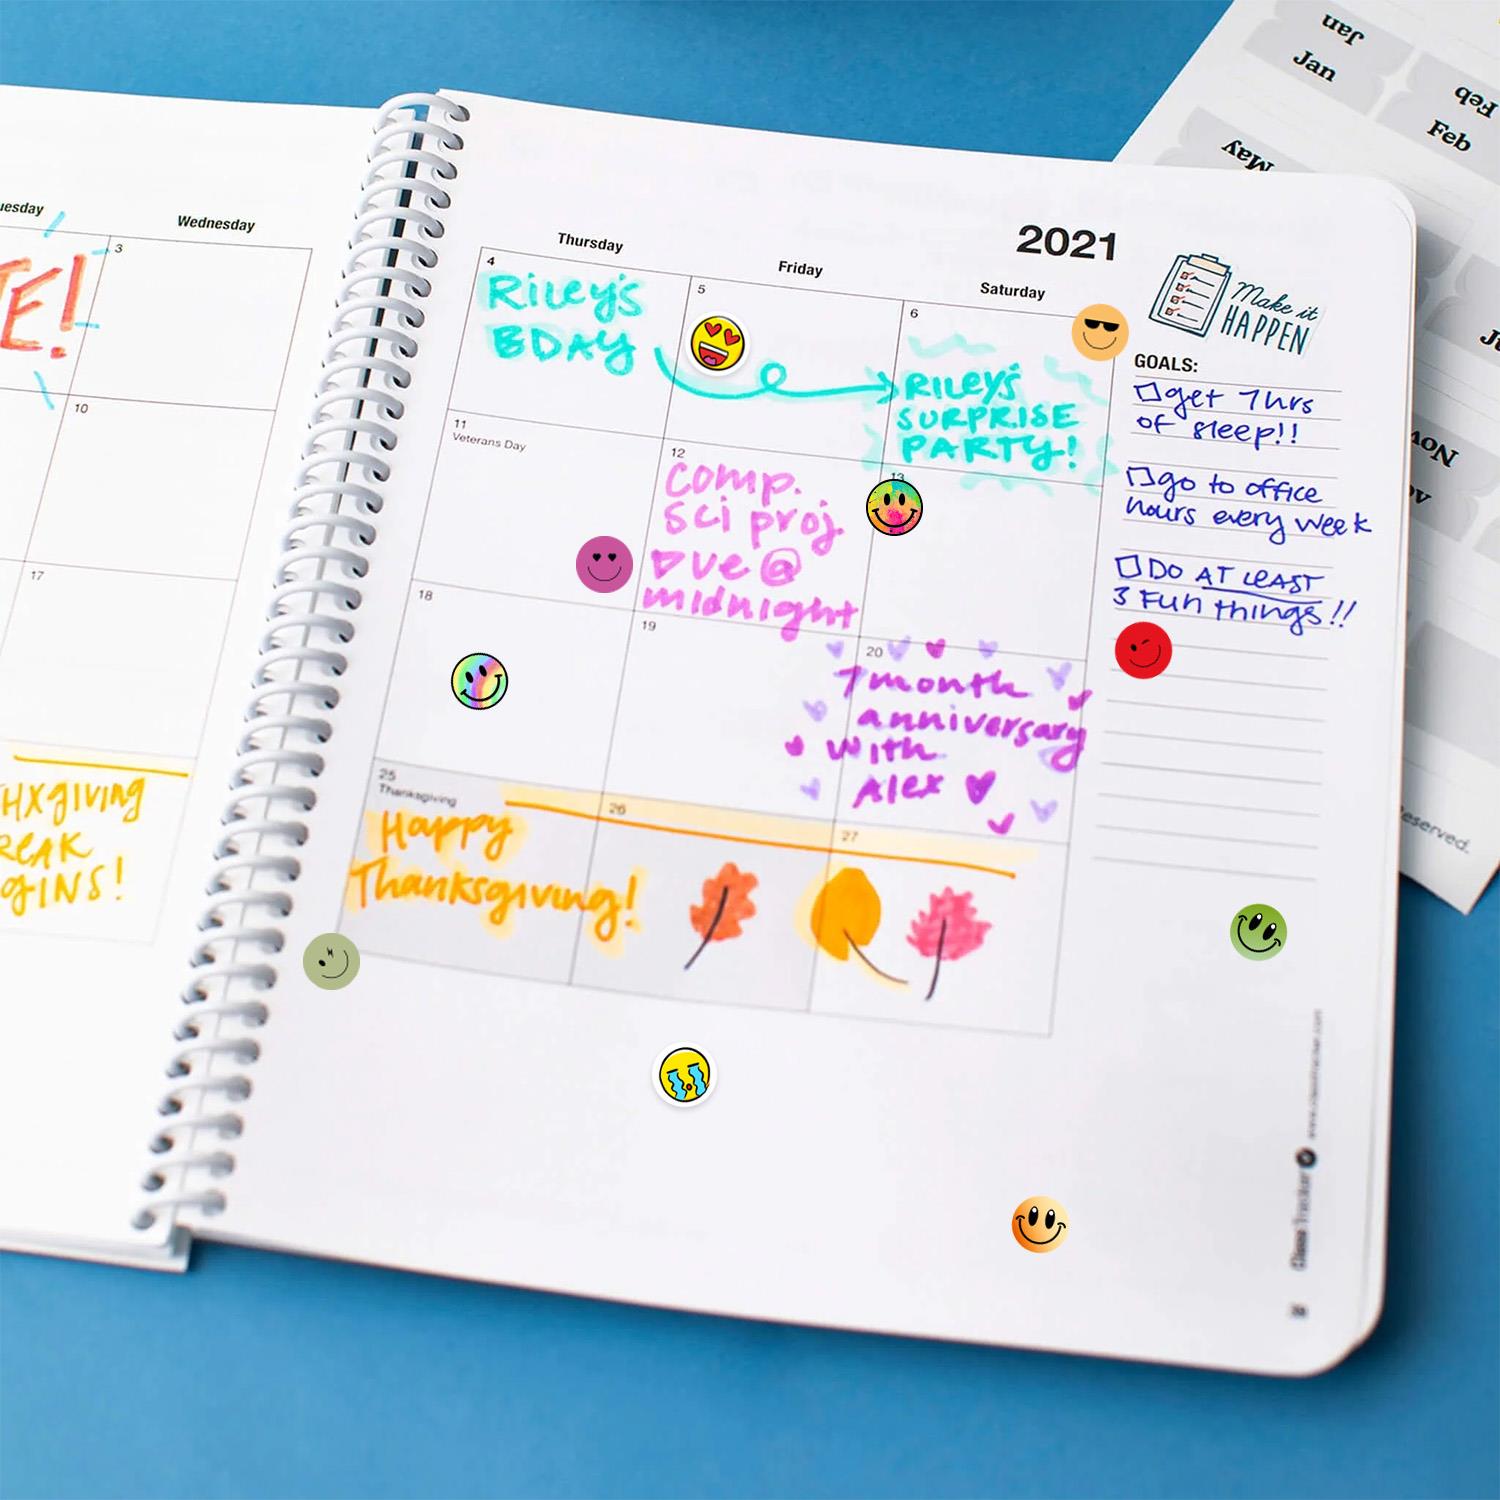 Wednesday
3
TE!
10
17
BREAK
2021
Thursday
Friday
Saturday
4
Riley's
BDAY
5
6
RILEY'S
SURPRISE
PARTY!
11
Veterans Day
12
Comp.
sci proj
Due @
midnight
13
18
19
20
7 month
anniversary
with
Alex
25
Thanksgiving
Happy
Thanksgiving!
26
27
Make it
HAPPEN
GOALS:
get 7hrs
of sleep!!
go to office
hours every week
DO AT LEAST
3 Fun things!!
Class Tracker
Jan
Jan
Feb
Feb
May
Nov